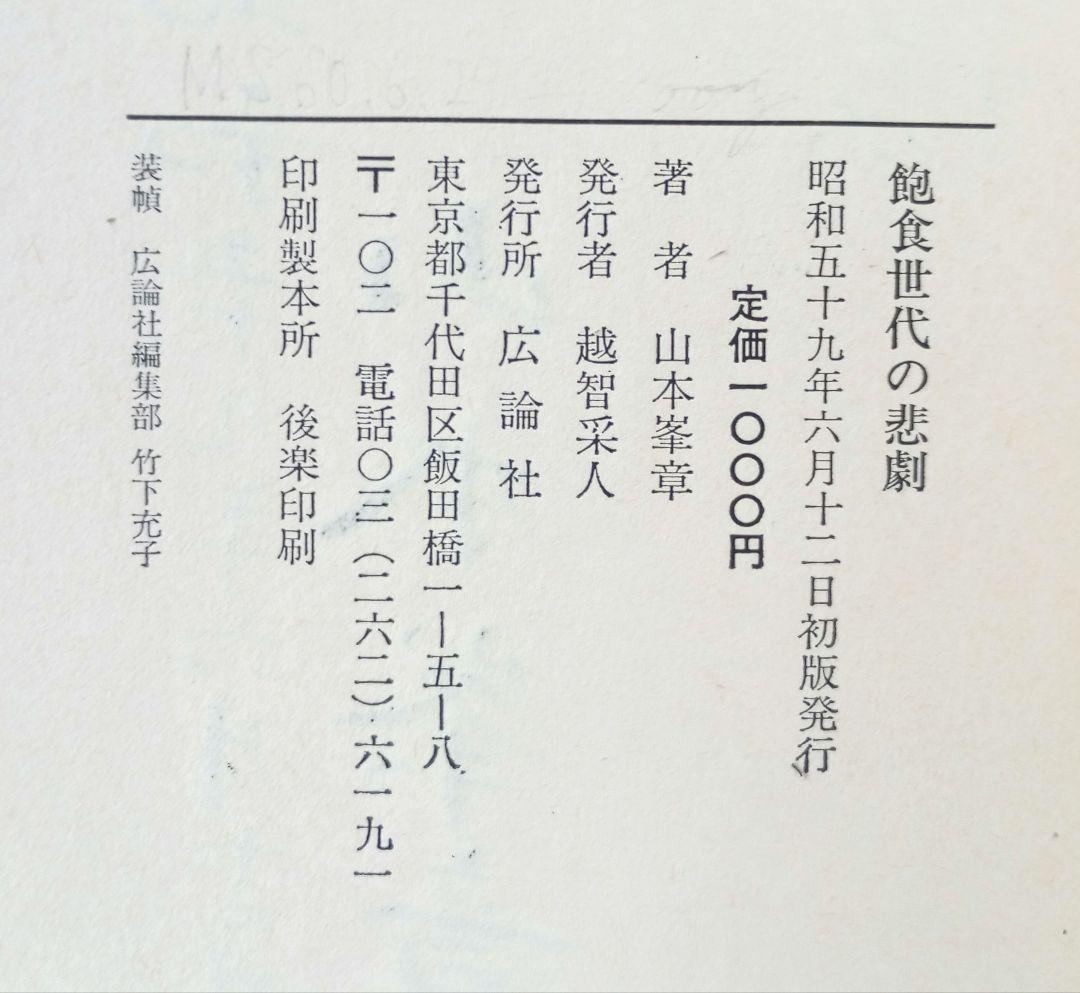 飽食世代の悲劇
昭和五十九年六月十二日初版発行
定価一〇〇〇円
著　者　山本峯章
発行者　越智采人
発行所　広論社
東京都千代田区飯田橋一ー五ー八
〒一〇二　電話〇三（二六二）六一九一
印刷製本所　後楽印刷
装幀　広論社編集部　竹下充子